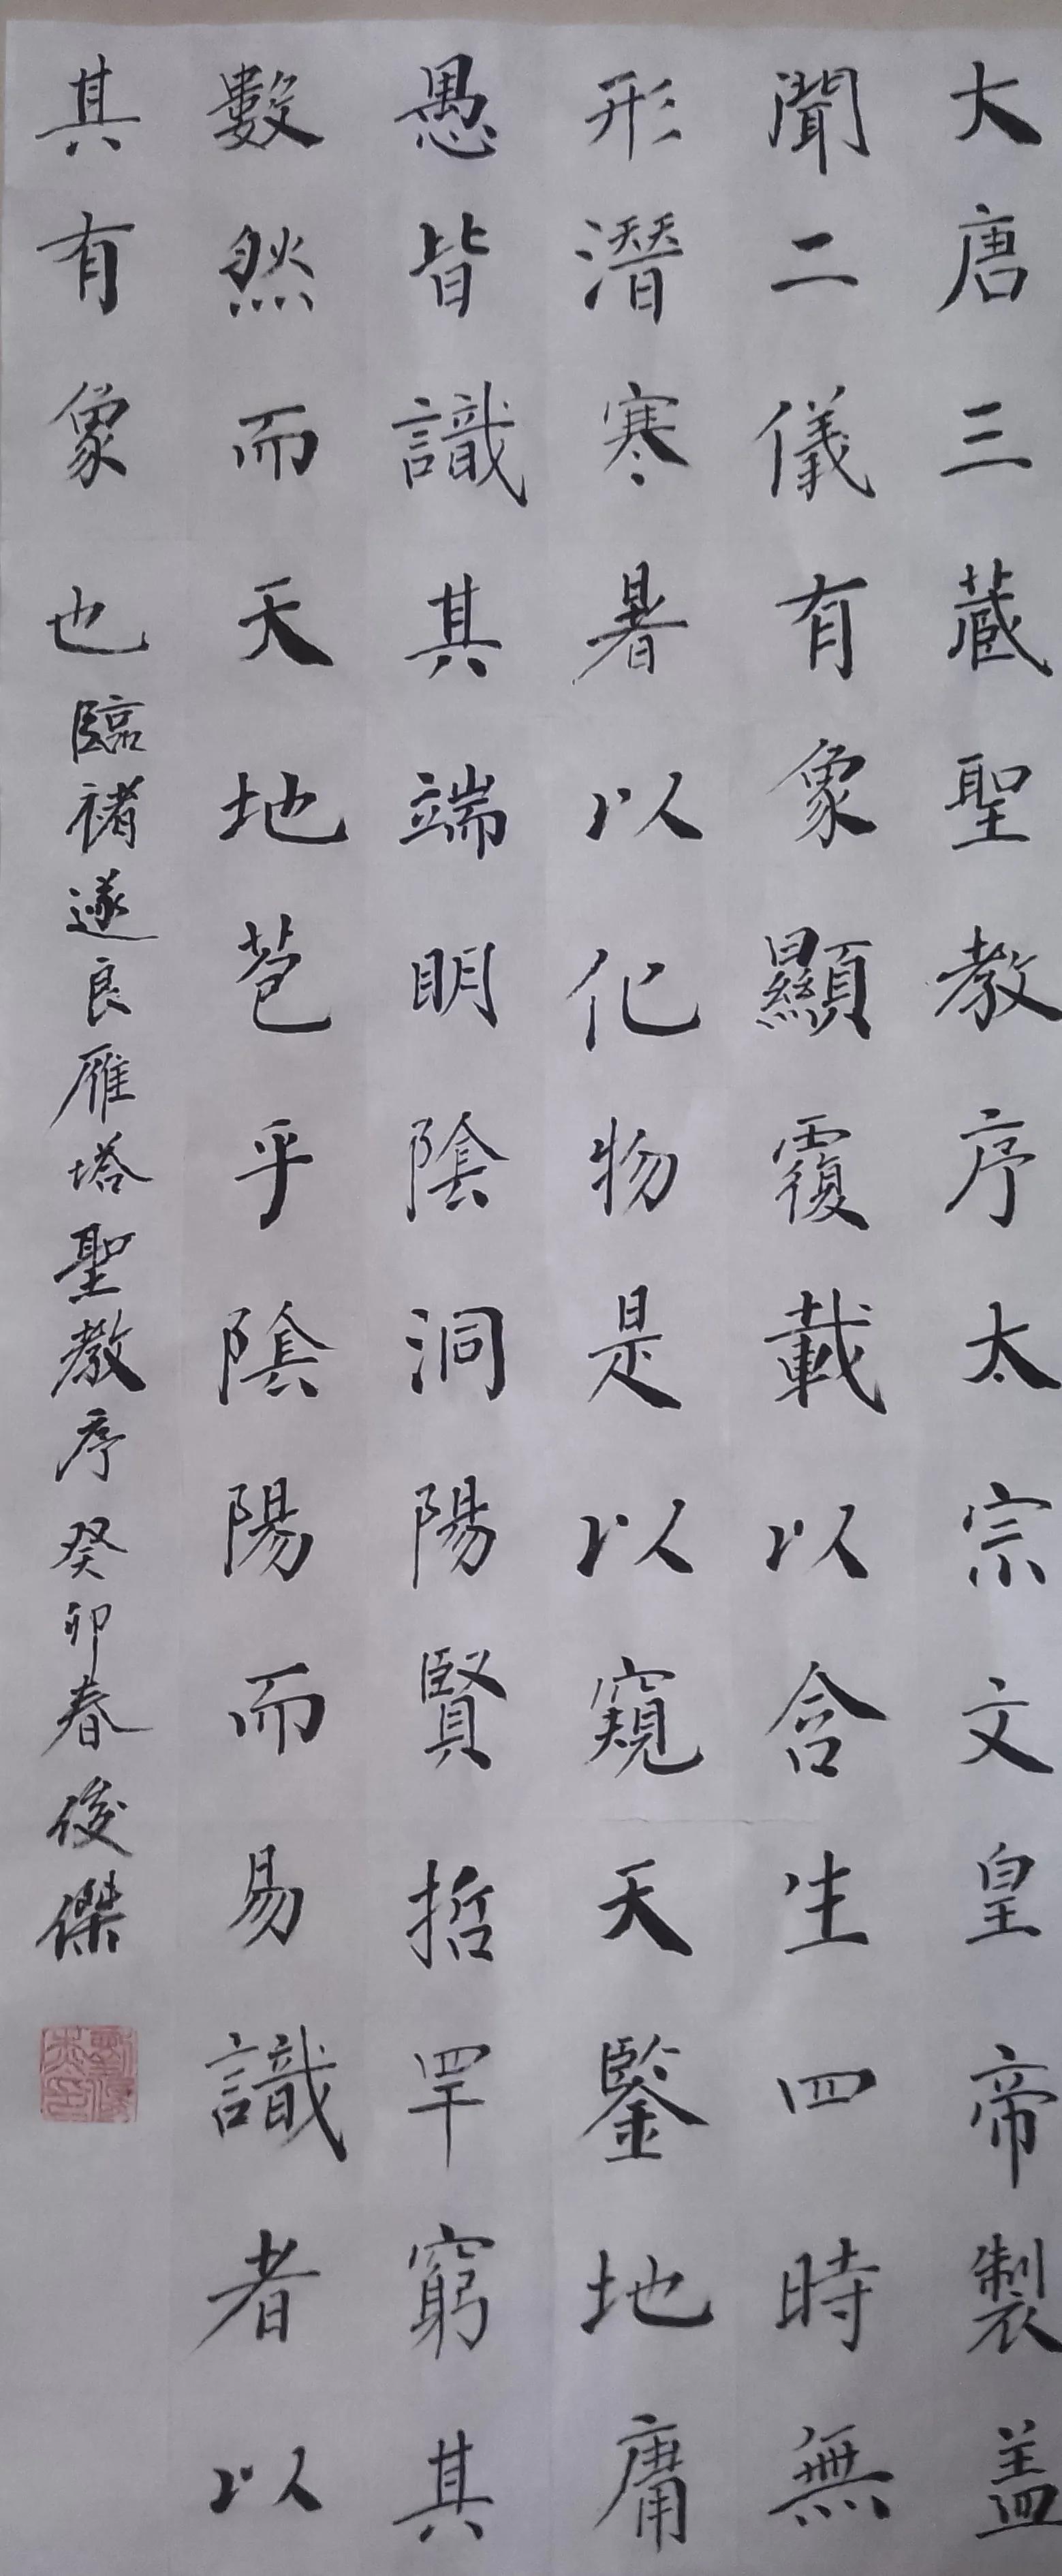 大唐三蔵聖教序太宗文皇帝製盖
聞二儀有象顯覆載以含生四時無
形潛寒暑以化物是以窺天鑒地庸
愚皆識其端明陰洞陽賢哲罕窮其
數然而天地苞乎陰陽而易識者以
其有象也臨褚遂良雁塔聖教序癸卯春俊傑